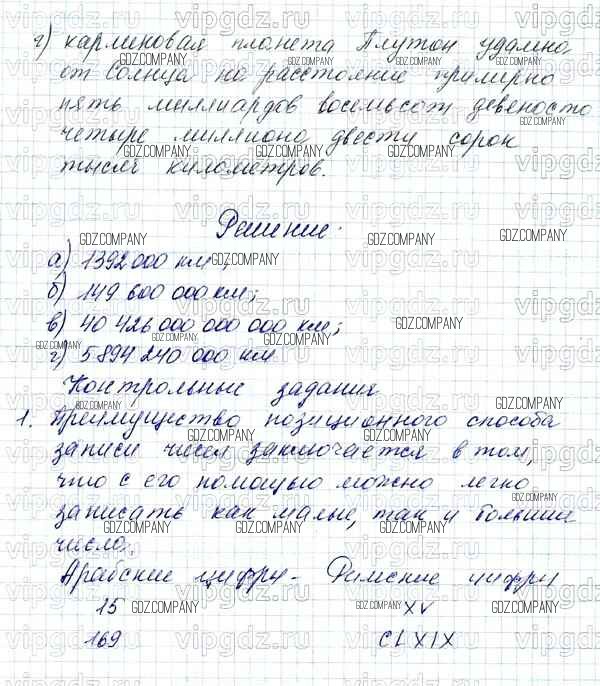 г) карликовая планета Плутон удалена
от Солнца на расстояние примерно
пять миллиардов восемьсот девяносто
четыре миллиона двести сорок
тысяч километров.
Решение.
а) 1392 000 км;
б) 149 600 000 км;
в) 40 426 000 000 000 км;
г) 5 894 240 000 км
Контрольные задания
1. Преимущество позиционного способа
записи чисел заключается в том,
что с его помощью можно легко
записать как малые, так и большие
числа.
Арабские цифры - Римские цифры
15 XV
169 CLXIX